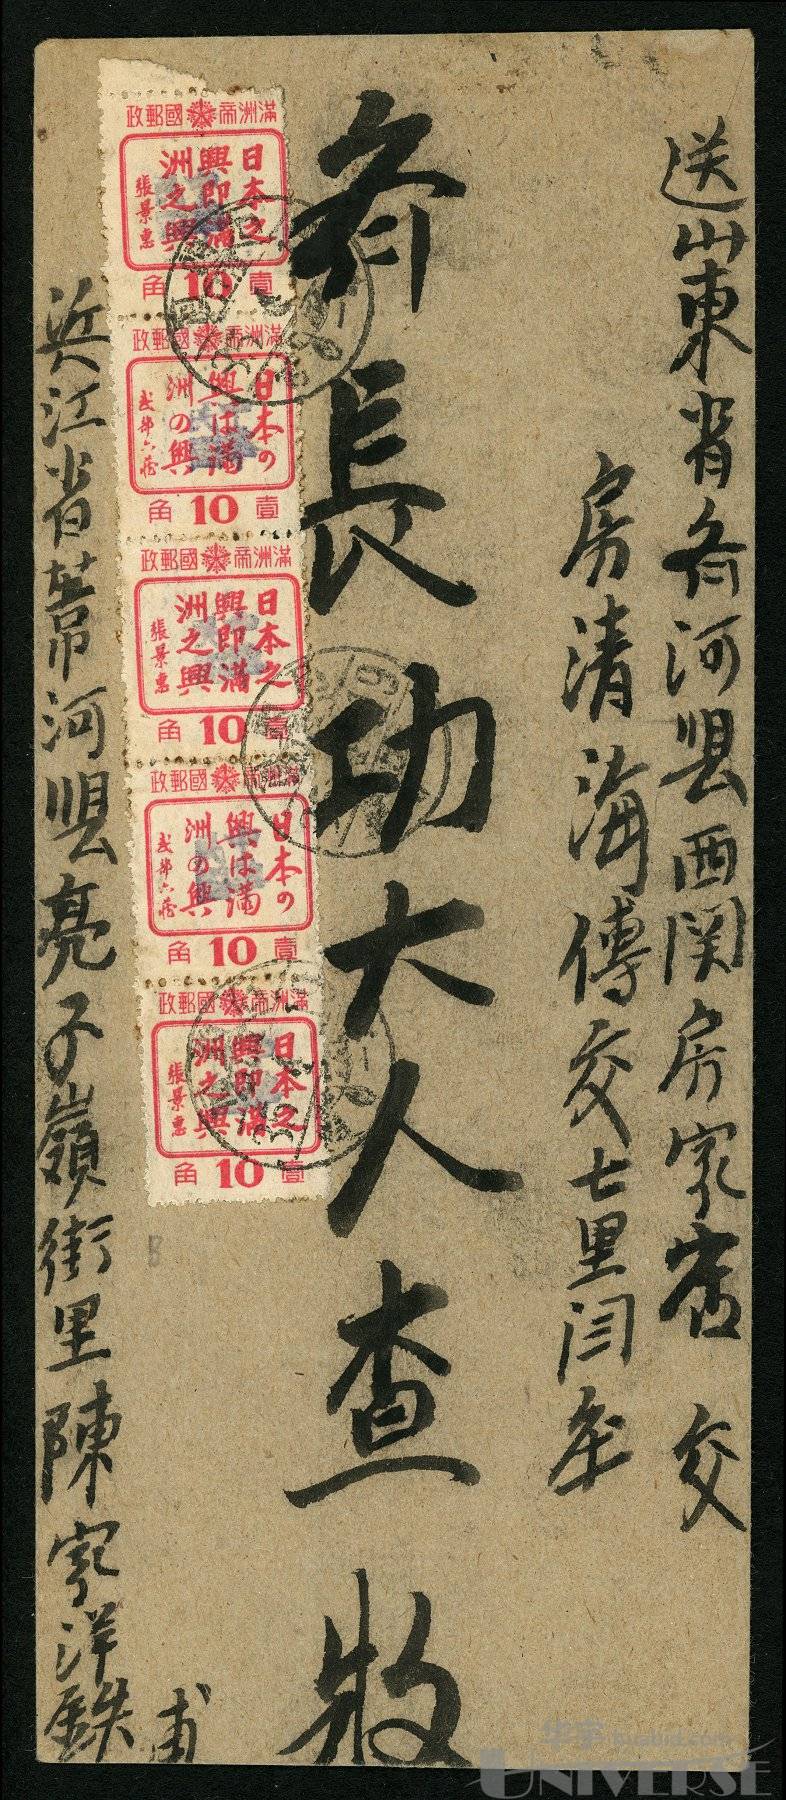 送山東省齐河縣西関房家宙 交
房清海傳交七里闫庄
齐長功大人查收
滿洲帝國郵政
日本之興即滿洲之興
張景惠
壹 10 角
滿洲帝國郵政
日本の興は満洲の興
武部六蔵
壹 10 角
滿洲帝國郵政
日本之興即滿洲之興
張景惠
壹 10 角
滿洲帝國郵政
日本の興は満洲の興
武部六蔵
壹 10 角
滿洲帝國郵政
日本之興即滿洲之興
張景惠
壹 10 角
浜江省葦河縣亮子嶺街里陳家洋鉄
甫
华宇 huabid.com
UNIVERSE